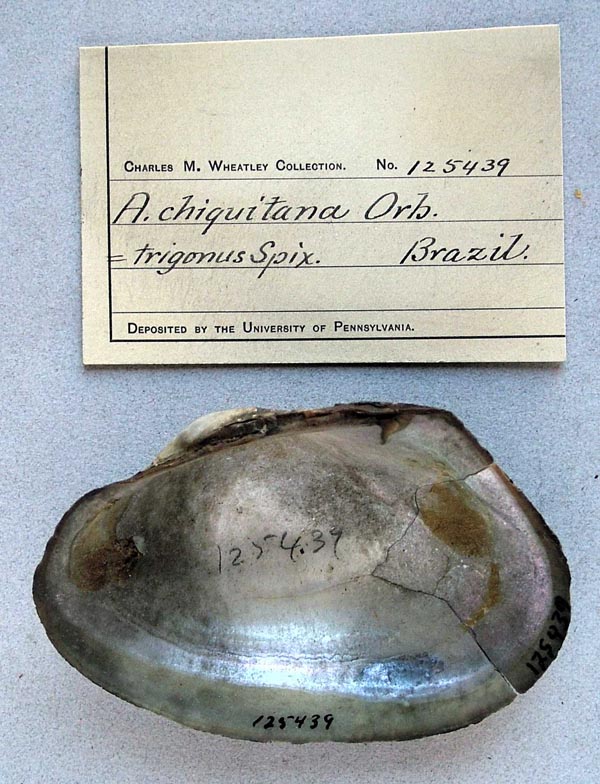 CHARLES M. WHEATLEY COLLECTION. No. 125439
A. chiquitana Orb.
= trigonus Spix. Brazil.
DEPOSITED BY THE UNIVERSITY OF PENNSYLVANIA.
125439
125439
125439